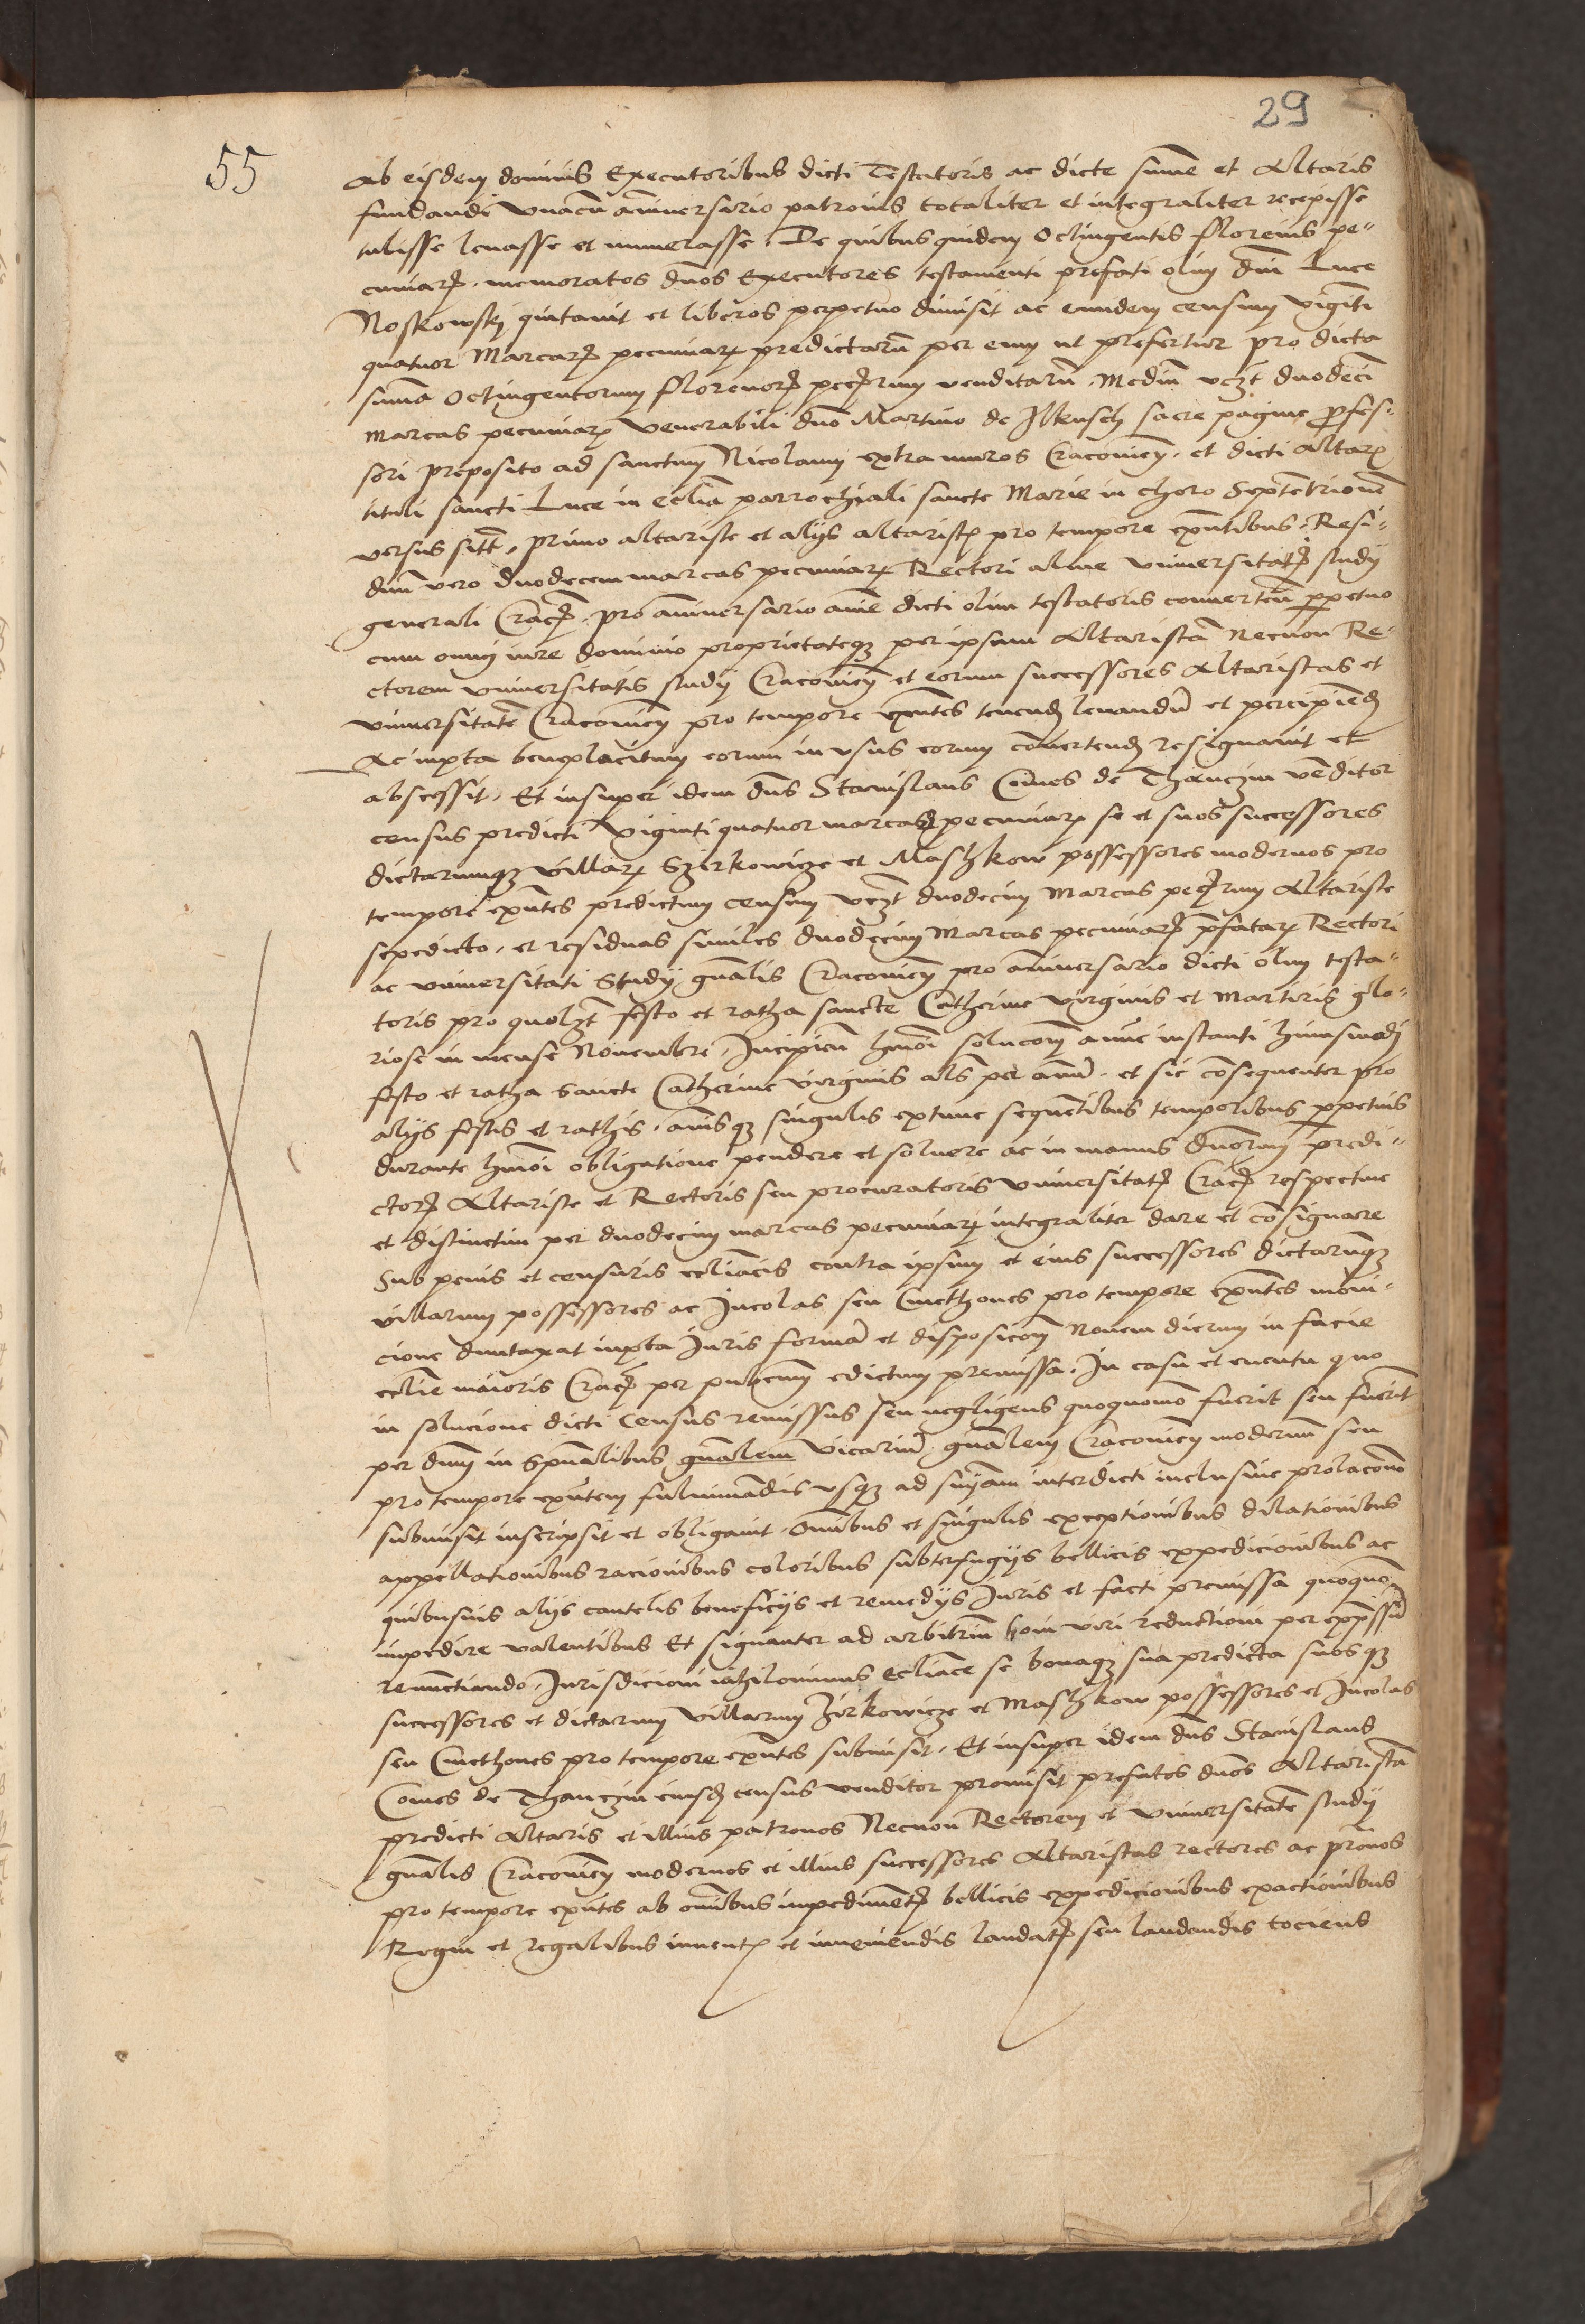 29
55
ab eisdem dominis Executoribus dicti Testatoris ac dicte sume et Altaris
fundandi unacum aniversario patronis totaliter et integraliter recepisse
tulisse levasse et numerasse. De quibus quidem Octingentis florenis pe-
cuniarum memoratos dnos Executores testamenti prefati olim dni Luce
Noskowskj quitavit et liberos perpetuo dimisit ac eundem censum viginti
quatuor Marcarum pecuniarum predictarum per eum ut prefertur pro dicta
suma Octingentorum florenorum pecuniarum venditarum. Mediam vezt duodecim
marcas pecuniarum Venerabili dno Martino de Ilkusch sacre pagine profes-
sori preposito ad sanctum Nicolaum extra muros Cracovien. et dicti Altaris
tituli sancti Luce in ecclia parrochiali sancte Marie in choro Septentrionem
versus siti, primo altariste et alijs altaristis pro tempore existentibus. Resi-
duas vero duodecem marcas pecuniarum Rectori alme universitatis studij
generali Crac. pro aniversario anime dicti olim testatoris convertendum perpetuo
cum omni iure dominio proprietateque per ipsum Altaristam Necnon Re-
ctorem universitatis studij Cracovien et eorum successores Altaristas et
universitatem Cracovien pro tempore exntes tenend levandum et percipiend
Ac iuxta beneplacitum eorum in usus eorum convertend resignavit et
abscessit. Et insuper idem dns Stanislaus Comes de Thanczin venditor
census predicti viginti quatuor marcarum pecuniarum se et suos successores
dictarumque villarum Szirkowicze et Maschkow possessores modernos pro
tempore exntes predictum censum vezt duodecim Marcas pecuniarum Altariste
sepedicto, et residuas similes duodecim Marcas pecuniarum prefatarum Rectori
ac universitati Studij gnalis Cracovien pro aniversario dicti olim testa-
toris pro quolzt festo et ratha sancte Catherine virginis et Martiris glo-
riose in mense Novembri, Incipien hmoi solucoem a nunc instanti
festo et ratha sancte Catherine virginis als per annum. et sic consequenter pro
alijs festis et rathis. annisque singulis extunc sequentibus temporibus perpetuis
durante hmoi obligatione pendere et solvere ac in manus dnorum predi-
ctorum Altariste et Rectoris seu procuratoris universitatis Crac. respective
et distinctim per duodecim marcas pecuniarum integraliter dare et consignare
Sub penis et censuris eccliacis contra ipsum et eius successores dictarumque
villarum possessores ac Incolas seu Cmethones pro tempore exntes moni-
cione duntaxat iuxta Juris formam et disposicoem Novem dierum in facie
ecclie maioris Crac. per publicum edictum premissa. In casu et eventu quo
in solucione dicti Census remissus seu negligens quoquomo fuerit seu fuerint
per dnum in spualibus gnalem vicarium gnalem Cracovien modernum seu
pro tempore exntem fulminandis usque ad sniam interdicti inclusive prolacoem
submisit inscripsit et obligavit. Omnibus et singulis exceptionibus dilationibus
appellationibus racionibus coloribus subterfugijs bellicis expedicionibus ac
quibusvis alijs cautelis beneficijs et remedijs Juris et facti premissa quoquomo
impedire valentibus Et signanter ad arbitrium boni viri reductioni per expssum
renunctiando, Jurisdicioni nihilominus ecliace se bonaque sua predicta suosque
successores et dictarum villarum Zirkowicze et Maschkow possessores et Incolas
seu Cmethones pro tempore exntes submisit. Et insuper idem dns Stanislaus
Comes de Thanczin eiusd census venditor promisit prefatos dnos Altaristam
predicti Altaris et illius patronos Necnon Rectorem et universitatem studij
gnalis Cracovien modernos et illius successores Altaristas rectores ac prnos
pro tempore exntes ab omnibus impedimentis bellicis expedicionibus exactionibus
Regni et regalibus inventis et inveniendis laudatis seu laudandis tociens